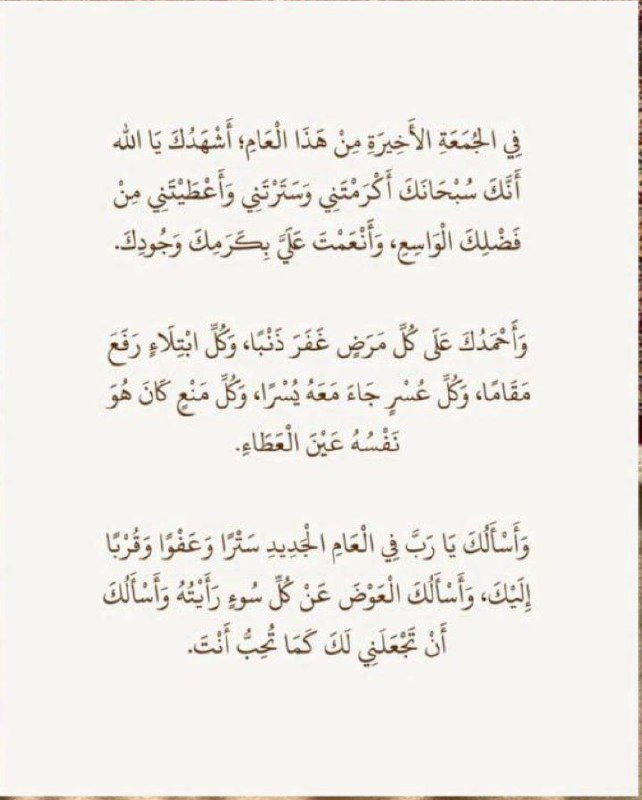 فِي الْجُمَعَةِ الأَخِيرَةِ مِنْ هَذَا الْعَامِ؛ أَشْهَدُكَ يَا الله
أَنَّكَ سُبْحَانَكَ أَكْرَمْتَنِي وَسَتَرْتَنِي وَأَعْطَيْتَنِي مِنْ
فَضْلِكَ الْوَاسِعِ، وَأَنْعَمْتَ عَلَيَّ بِكَرَمِكَ وَجُودِكَ.
وَأَحْمَدُكَ عَلَى كُلِّ مَرَضٍ غَفَرَ ذَنْبًا، وَكُلِّ ابْتِلَاءٍ رَفَعَ
مَقَامًا، وَكُلِّ عُسْرٍ جَاءَ مَعَهُ يُسْرًا، وَكُلِّ مَنْعٍ كَانَ هُوَ
نَفْسُهُ عَيْنَ الْعَطَاءِ.
وَأَسْأَلُكَ يَا رَبَّ فِي الْعَامِ الْجَدِيدِ سَتْرًا وَعَفْوًا وَقُرْبًا
إِلَيْكَ، وَأَسْأَلُكَ الْعَوْضَ عَنْ كُلِّ سُوءٍ رَأَيْتُهُ وَأَسْأَلُكَ
أَنْ تَجْعَلَنِي لَكَ كَمَا تُحِبُّ أَنْتَ.